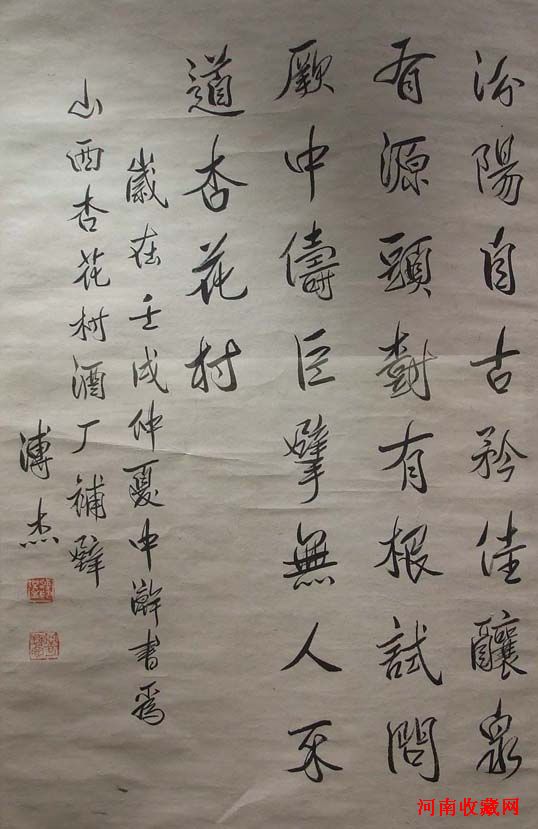 汾陽自古矜佳釀泉
有源頭樹有根試問
厥中儔巨擘無人不
道杏花村
歲在壬戌仲夏中澣書為
山西杏花村酒厂補壁
溥杰
河南收藏网